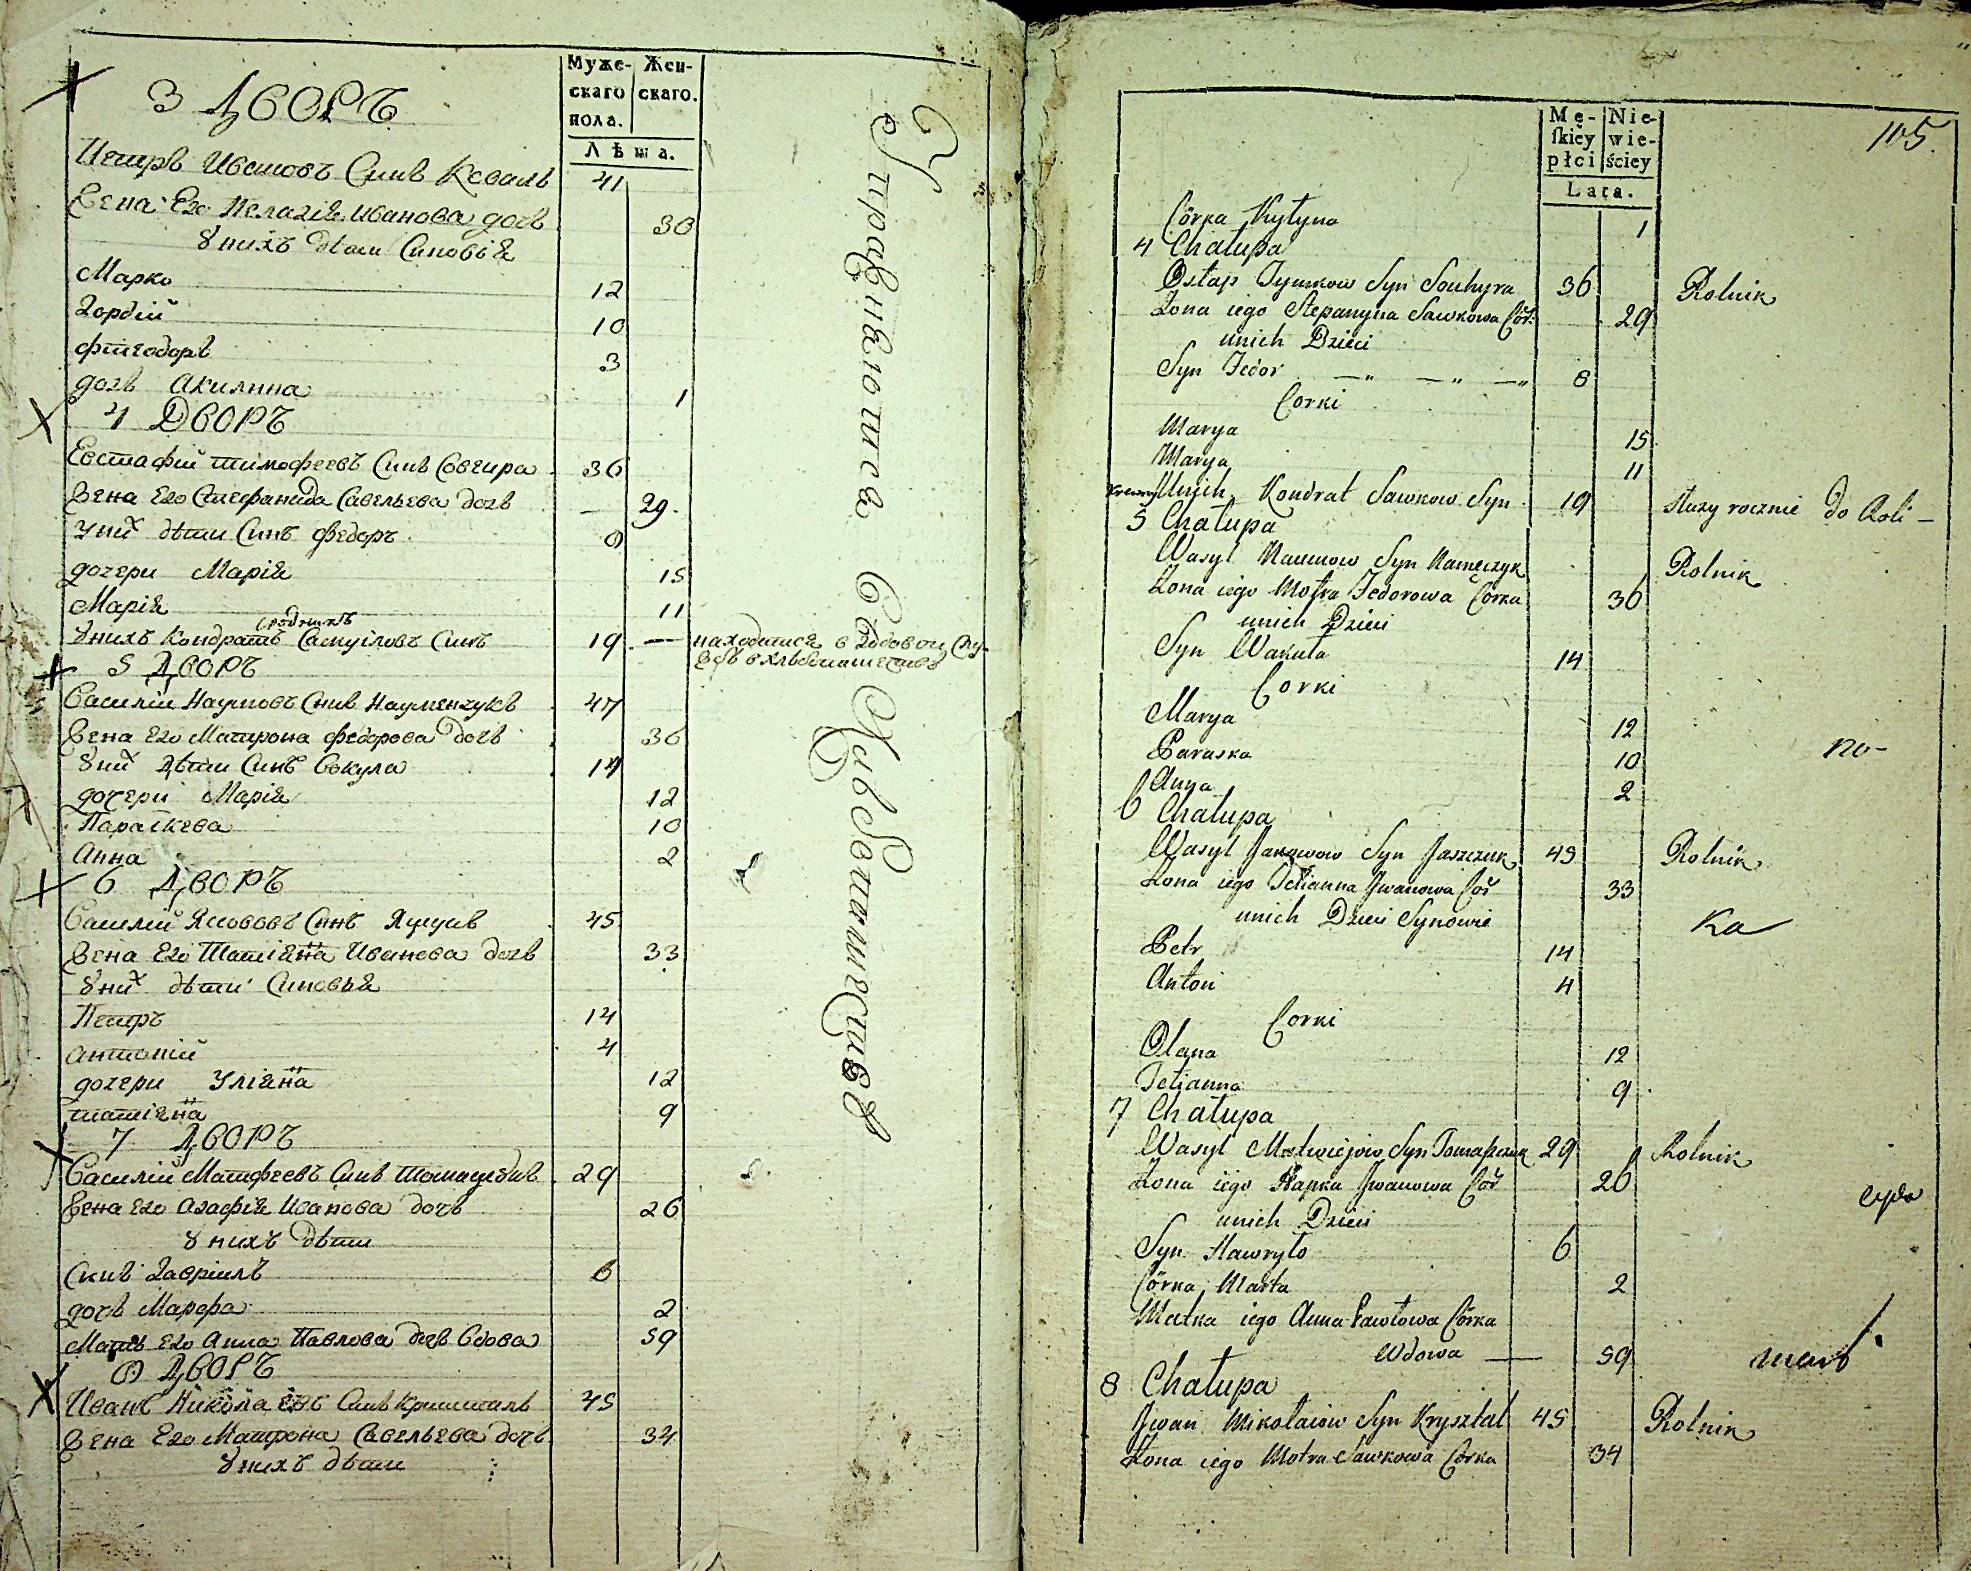 Муже-
скаго
пола.
Жен-
скаго.
Лѣта.
3 Дворъ
Петръ Ивановъ Синъ Коваль 41
Жена Его Пелагія Иванова дочь 30
У нихъ дѣти Синовія
Марко 12
Гордій 10
Фтеодоръ 3
дочь Акилина 1
4 Дворъ
Евстафій Тимофеевъ Синъ 36
Жена Его Стефанида Савельева дочь — 29.
У них дѣти Синъ Федоръ 8
дочери Марія 15
Марія 11
сродникъ
У нихъ Кондратъ Самуіловъ Синъ 19 — находится в Годовой Слу-
жбѣ в хлѣбопашествѣ
5 Дворъ
Василій Наумовъ Синъ Науменчукъ 47
Жена Его Матрона Федорова дочь 36
У них Дѣти Синъ Вакула 14
дочери Марія 12
Параскева 10
Анна 2
6 Дворъ
Василій Синъ 45
Жена Его Татіяна Иванова дочь 33
У них дѣти Синовья
Петръ 14
Антоній 4
дочери Уліяна 12
Татіяна 9
7 Дворъ
Василій Матфеевъ Синъ 29
Жена Его Агафія Иванова дочь 26
У нихъ дѣти
Синъ Гавріилъ 6
дочь Марфа 2
Мать Его Анна Павлова дочь Вдова 59
8 Дворъ
Иванъ Николаевъ Синъ Кришталь 45
Жена Его Матрона Савельева дочь 34
У нихъ дѣти
Упражняются Въ Хлѣбопашествѣ
105.
Mę-
skiey
płci
Nie-
wie-
ściey
Lata.
Córka Kytyna 1
4 Chałupa
Ostap Tymkow Syn Souhyra 36 Rolnik
Żona iego Stepanyna Sawkowa Cór: 29
unich Dzieci
Syn Fedor —„ —„ —„ 8
Corki
Marya 15
Marya 11
Krewny Unich Kondrat Sawkow Syn 19 służy rocznie do Roli-
5 Chałupa
Wasyl Naumow Syn Rolnik
Żona iego Motra Fedorowa Córka 36
unich Dzieci
Syn Wakuła 14
Corki
Marya 12
Paraska 10 no-
Anna 2
6 Chałupa
Wasyl Syn Jaszczuk 45 Rolnik
Żona iego Tetianna Jwanowa Cór 33
unich Dzieci Synowie ка
Petr 14
Anton 4
Corki
Olana 12
Tetianna 9
7 Chałupa
Wasyl Matwiejow Syn Tomaszczuk 29 Rolnik
Żona iego Hapka Jwanowa Cór 26
unich Dzieci
Syn Hawryło 6
Córka Marta 2
Matka iego Anna Pawłowa Córka
Wdowa — 59
8 Chałupa
Jwan Mikołaiow Syn Kryształ 45 Rolnik
Żona iego Motra Sawkowa Córka 34